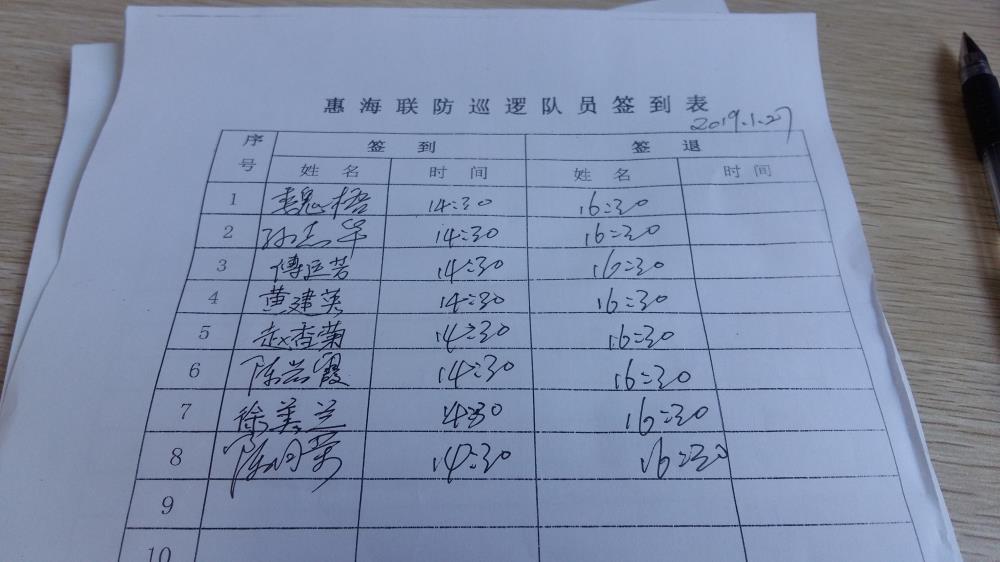 惠海联防巡逻队员签到表
2019.1.27
序号 签到 签退
姓名 时间 姓名 时间
1 魏梧 14:30 16:30
2 孙志华 14:30 16:30
3 傅运芳 14:30 16:30
4 黄建英 14:30 16:30
5 赵杏菊 14:30 16:30
6 陈岚霞 14:30 16:30
7 徐美兰 14:30 16:30
8 陈 14:30 16:30
9
10